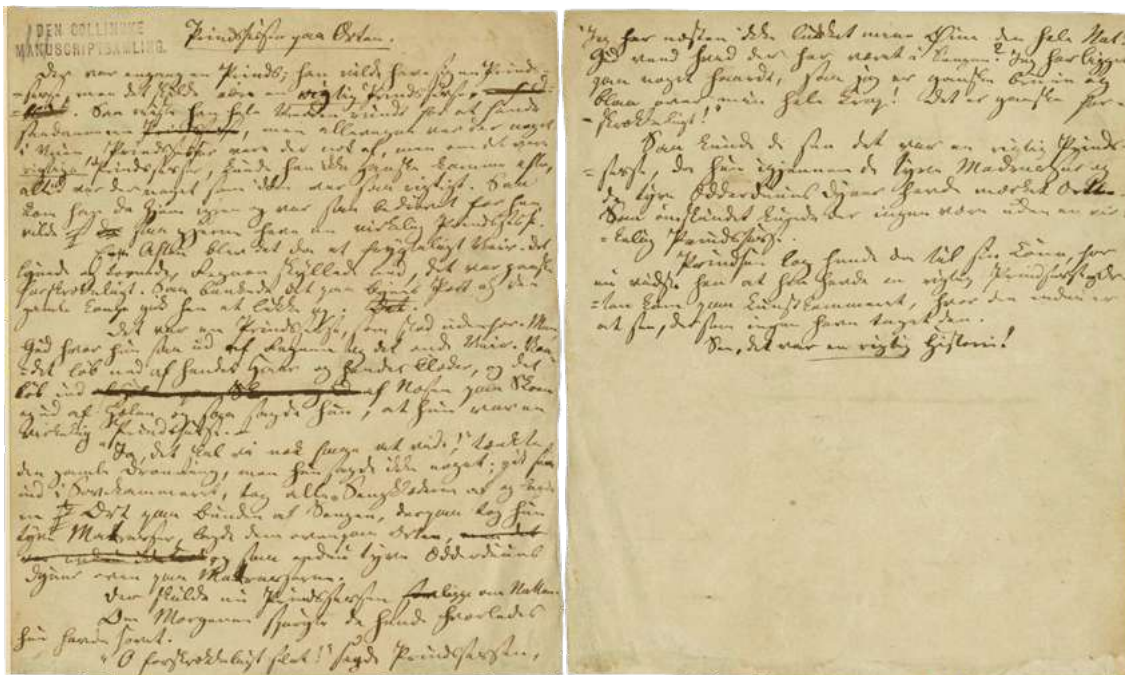 DEN COLLINSKE
MANUSCRIPTSAMLING.
Prindsessen paa Ærten.
Der var engang en Prinds; han vilde have sig en Prind-
-sesse, men det skulde være en rigtig Prindsesse,
Saa reiste han hele Verden rundt for at finde
saadan en men allevegne var der noget
i Veien, Prindsesser vare der nok af, men om det vare
rigtige Prindsesser, kunde han ikke ganske komme efter,
altid var der noget som ikke var saa rigtigt. Saa
kom han da hjem igjen og var saa bedrøvet for han
vilde saa gjerne have en virkelig Prindsesse.
Aften blev det da et frygteligt Veir. det
lynede og tordnede, Regnen skyllede ned, det var ganske
forskrækkeligt! Saa bankede det paa Byens Port og den
gamle Konge gik hen at lukke op.
Det var en Prindsesse, som stod udenfor. Men
Gud hvor hun saa ud af Regnen og det onde Veir. Van-
-det løb ned af hendes Haar og hendes Klæder, og det
løb ind af Næsen paa Skoen
og ud af Hælen og saa sagde hun, at hun var en
virkelig Prindsesse.
"Ja, det skal vi nok faae at vide!" tænkte
den gamle Dronning, men hun sagde ikke noget; gik hen
ind i Sovekammeret, tog alle Sengklæderne af og lagde
en Ært paa Bunden af Sengen, derpaa tog hun
tyve Matrasser, lagde dem ovenpaa Ærten,
og saa endnu tyve Edderduuns
Dyner oven paa Matrasserne.
Der skulde nu Prindsessen ligge om Natten.
Om Morgenen spurgte de hende hvorledes
hun havde sovet.
"O forskrækkeligt slet!" sagde Prindsessen,
"Jeg har næsten ikke lukket mine Øine den hele Nat!
Gud veed hvad der har været i Sengen? Jeg har ligget
paa noget haardt, saa jeg er ganske bruun og
blaa over min hele Krop! det er ganske for-
-skrækkeligt!"
Saa kunde de see det var en rigtig Prind-
-sesse, da hun igjennem de tyve Madrasser og
de tyve Edderduuns Dyner havde mærket Ærten.
Saa ømskindet kunde der ingen være uden en vir-
-kelig Prindsesse.
Prindsen tog hende da til sin Kone, for
nu vidste han at han havde en rigtig Prindsesse og Ær-
-ten kom paa Kunstkammeret, hvor den endnu er
at see, dersom ingen havn taget den.
See, det var en rigtig Historie!